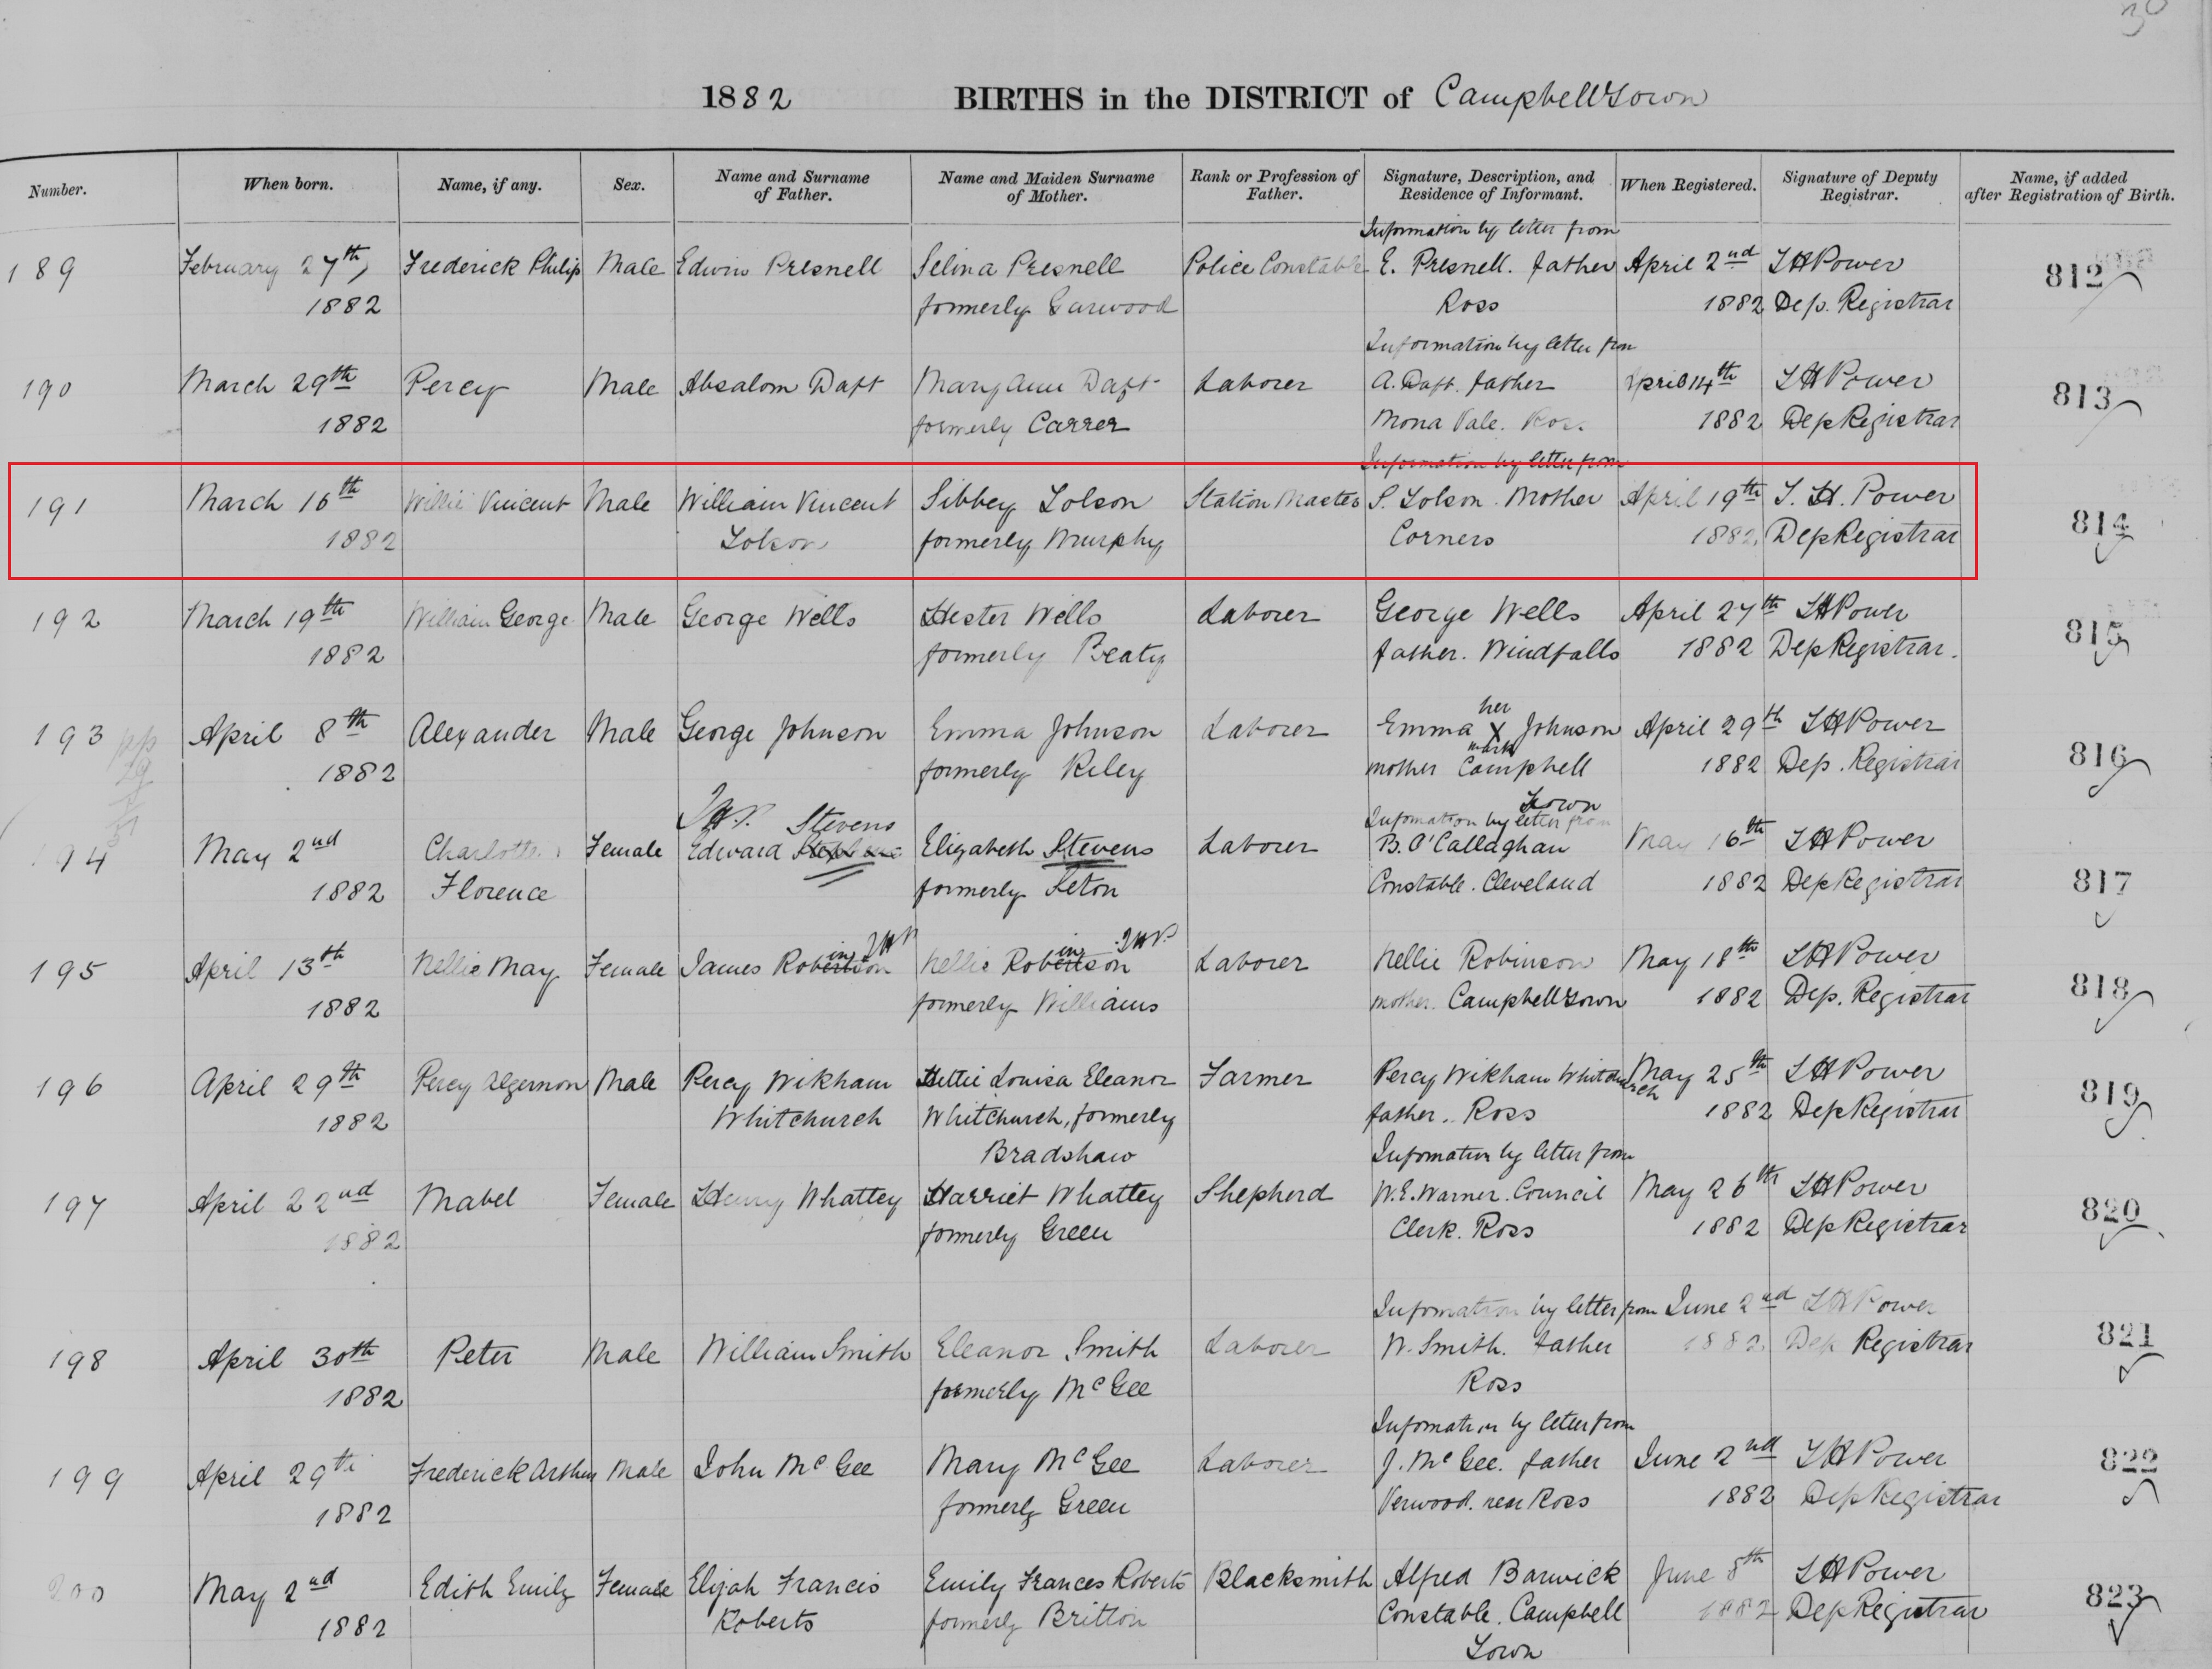 30
1882 BIRTHS in the DISTRICT of Campbell Town
Number. When born. Name, if any. Sex. Name and Surname of Father. Name and Maiden Surname of Mother. Rank or Profession of Father. Signature, Description, and Residence of Informant. When Registered. Signature of Deputy Registrar. Name, if added after Registration of Birth.
Information by letter from
189 February 27th, Frederick Philip Male Edwin Presnell Selina Presnell Police Constable E. Presnell. father April 2nd THPower 812
1882 formerly Garwood Ross 1882 Dep. Registrar
Information by letter from
190 March 29th Percy Male Absalom Daft Mary Ann Daft Laborer A. Daft. father April 14th THPower 813
1882 formerly Carrer Mona Vale. Ross 1882 Dep Registrar
Information by letter from
191 March 16th Willie Vincent Male William Vincent Sibbey Tolson Station Master S. Tolson. Mother April 19th T. H. Power 814
1882 Tolson formerly Murphy Corners 1882. Dep Registrar
192 March 19th William George Male George Wells Hester Wells Laborer George Wells April 27th THPower 815
1882 formerly Beaty father. Windfalls 1882 Dep Registrar.
her
193 April 8th Alexander Male George Johnson Emma Johnson Laborer Emma X Johnson April 29th THPower 816
mark
1882 formerly Riley mother Campbell 1882 Dep. Registrar
Town
THP. Stevens Information by letter from
194 May 2nd Charlotte Female Edward Elizabeth Stevens Laborer B. O'Callaghan May 16th THPower 817
1882 Florence formerly Seton Constable. Cleveland 1882 Dep Registrar
in THP in THP
195 April 13th Nellie May Female James Robertson Nellie Robertson Laborer Nellie Robinson May 18th THPower 818
1882 formerly Williams mother. Campbell Town 1882 Dep. Registrar
196 April 29th Percy Algernon Male Percy Wikham Hettie Louisa Eleanor Farmer Percy Wikham Whitchurch May 25th THPower 819
1882 Whitchurch Whitchurch, formerly father. Ross 1882 Dep Registrar
Bradshaw Information by letter from
197 April 22nd Mabel Female Henry Whattey Harriet Whattey Shepherd W.E. Warner. Council May 26th THPower 820
1882 formerly Green Clerk. Ross 1882 Dep Registrar
Information by letter from June 2nd THPower
198 April 30th Peter Male William Smith Eleanor Smith Laborer W. Smith. father 1882 Dep Registrar 821
1882 formerly McGee Ross
Information by letter from
199 April 29th Frederick Arthur Male John McGee Mary McGee Laborer J. McGee. father June 2nd THPower 822
1882 formerly Green Verwood. near Ross 1882 Dep Registrar
200 May 2nd Edith Emily Female Elijah Francis Emily Frances Roberts Blacksmith Alfred Barwick June 8th THPower 823
1882 Roberts formerly Britton Constable. Campbell 1882 Dep Registrar
Town